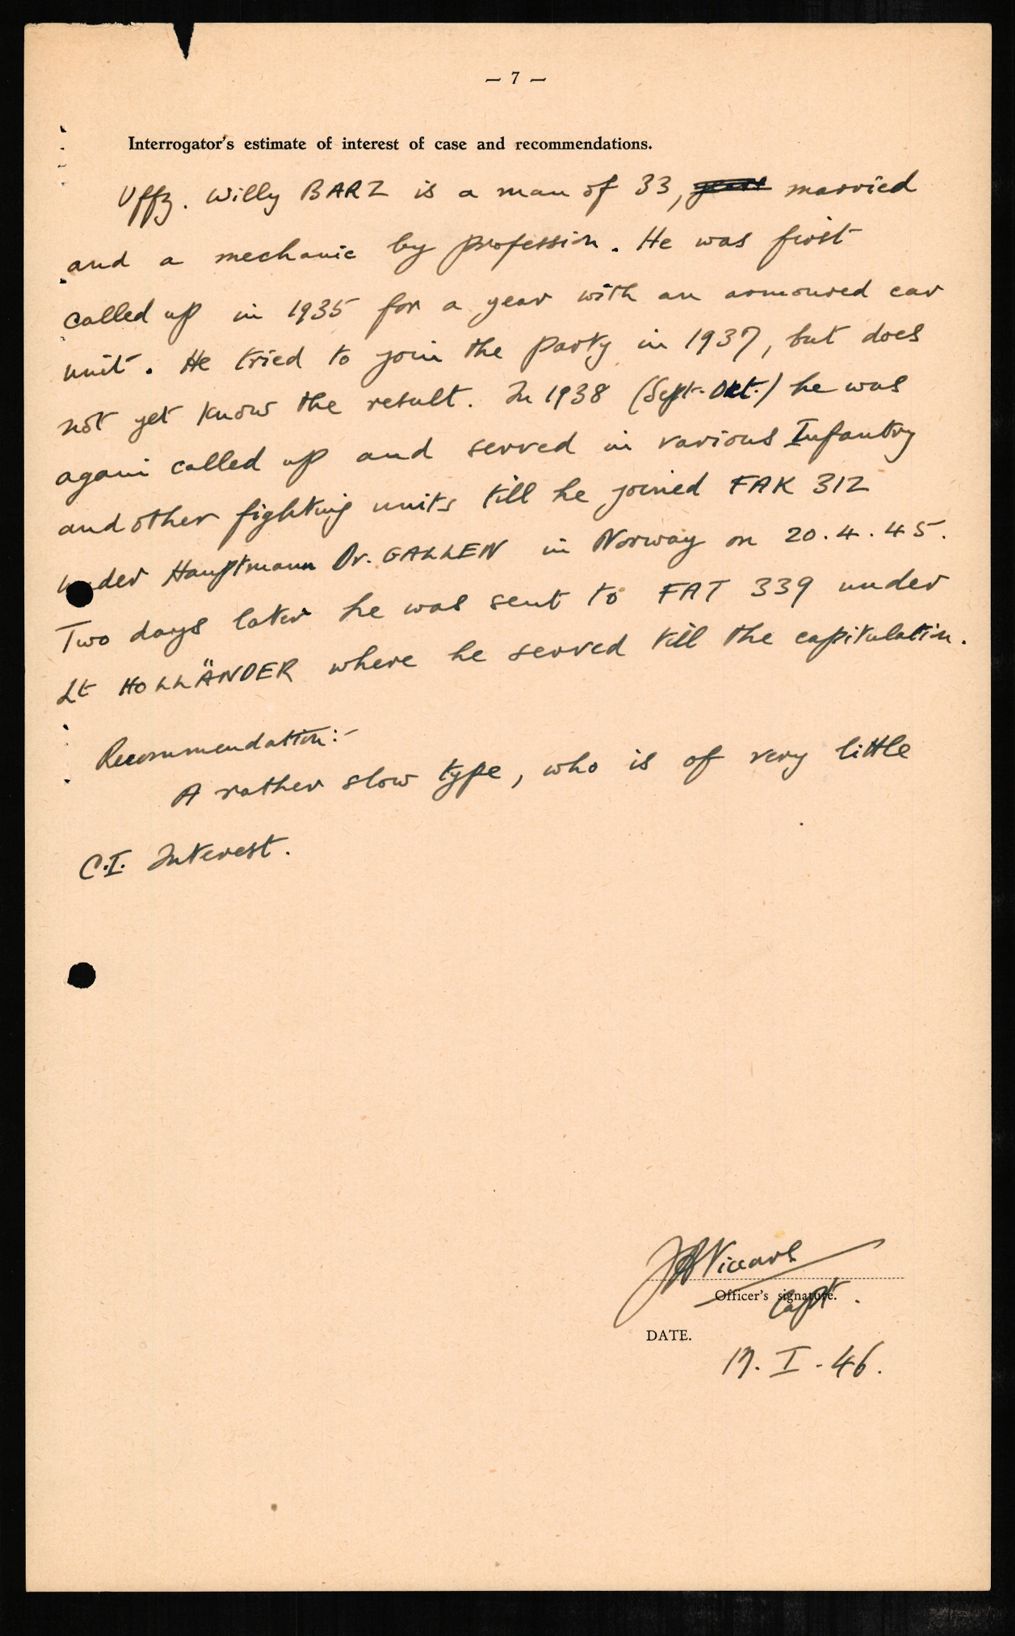 — 7 —
Interrogator's estimate of interest of case and recommendations.
Uffz. Willy BARZ is a man of 33, years married
and a mechanic by profession. He was first
called up in 1935 for a year with an armoured car
unit. He tried to join the Party in 1937, but does
not yet know the result. In 1938 (Sept-Okt.) he was
again called up and served in various Infantry
and other fighting units till he joined FAK 312
under Hauptmann Dr. GALLEN in Norway on 20.4.45.
Two days later he was sent to FAT 339 under
Lt HOLLÄNDER where he served till the capitulation.
Recommendation:-
A rather slow type, who is of very little
C.I. Interest.
Officer's signature.
Capt.
DATE.
17. I. 46.